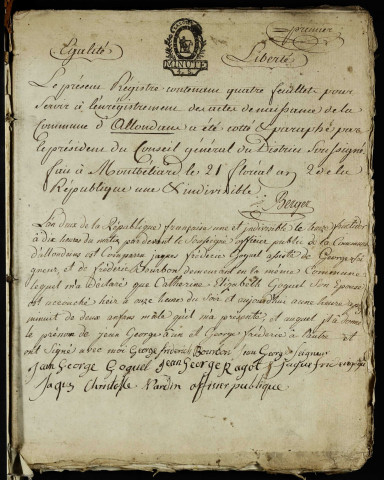 premier
Egalité Liberté
MINUTE
Le présent Régistre contenant quatre feuillets pour
servir à l'enregistrement des actes de naissance de la
Commune d'Allondans a été cotté & paraphé par
le président du Conseil général du District soussigné
fait à Montbéliard le 21 floréal an 2 de la
République une & indivisible.
Berger
L'an deux de la République française une et indivisible le
à dix heures du matin pardevant le Soussigné officier public de la Commune
d'allondans est Comparu Jaques frédéric Goguel assisté de George
et de fréderic Bourbon demeurant en la même Commune
lequel m'a déclaré que Catherine Elizabeth Goguel son épouse
est accouché hier à onze heures du Soir et aujourd'hui
minuit de deux enfans mâle qu'il m'a présenté, et auquel il a donné
le prénom de jean George à l'un et George frédéric à l'autre et
ont Signé avec moi George frederich Bourbon
Jean George Goguel Jean George Ragot
Jaques Christofle Nardin officier publique